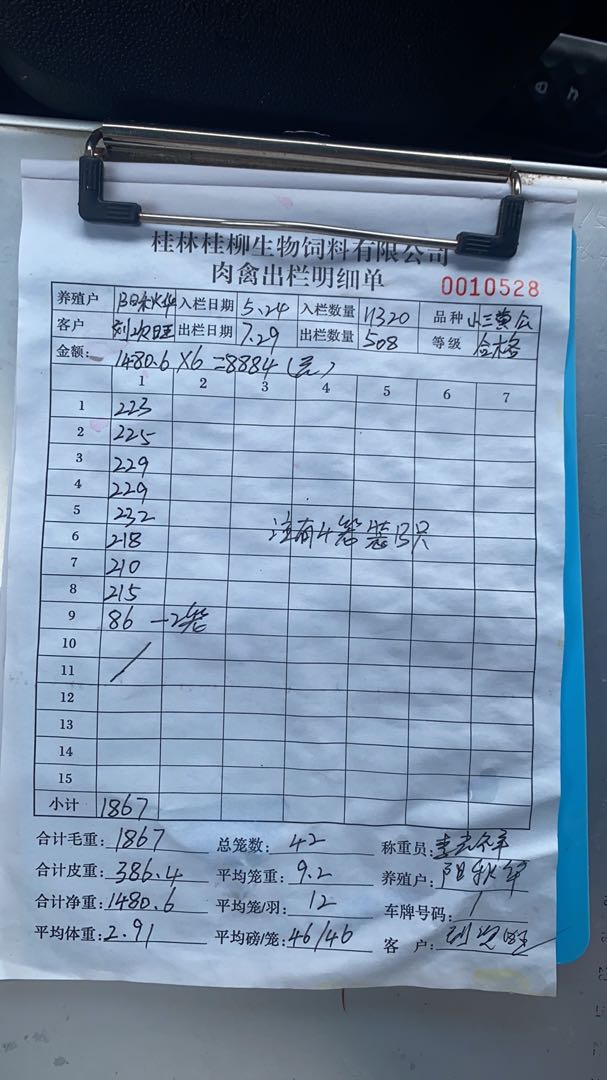 桂林桂柳生物饲料有限公司
肉禽出栏明细单
0010528
养殖户 阳秋华 入栏日期 5.24 入栏数量 11320 品种 小三黄公
客户 出栏日期 7.29 出栏数量 508 等级 合格
金额: 1480.6×6=8884(元)
1 2 3 4 5 6 7
1 223
2 225
3 229
4 229
5 232
6 218 注有4笼装13只
7 210
8 215
9 86 —2笼
10
11
12
13
14
15
小计 1867
合计毛重: 1867 总笼数: 42 称重员:
合计皮重: 386.4 平均笼重: 9.2 养殖户: 阳秋华
合计净重: 1480.6 平均笼/羽: 12 车牌号码: /
平均体重: 2.91 平均磅/笼: 46/46 客户: